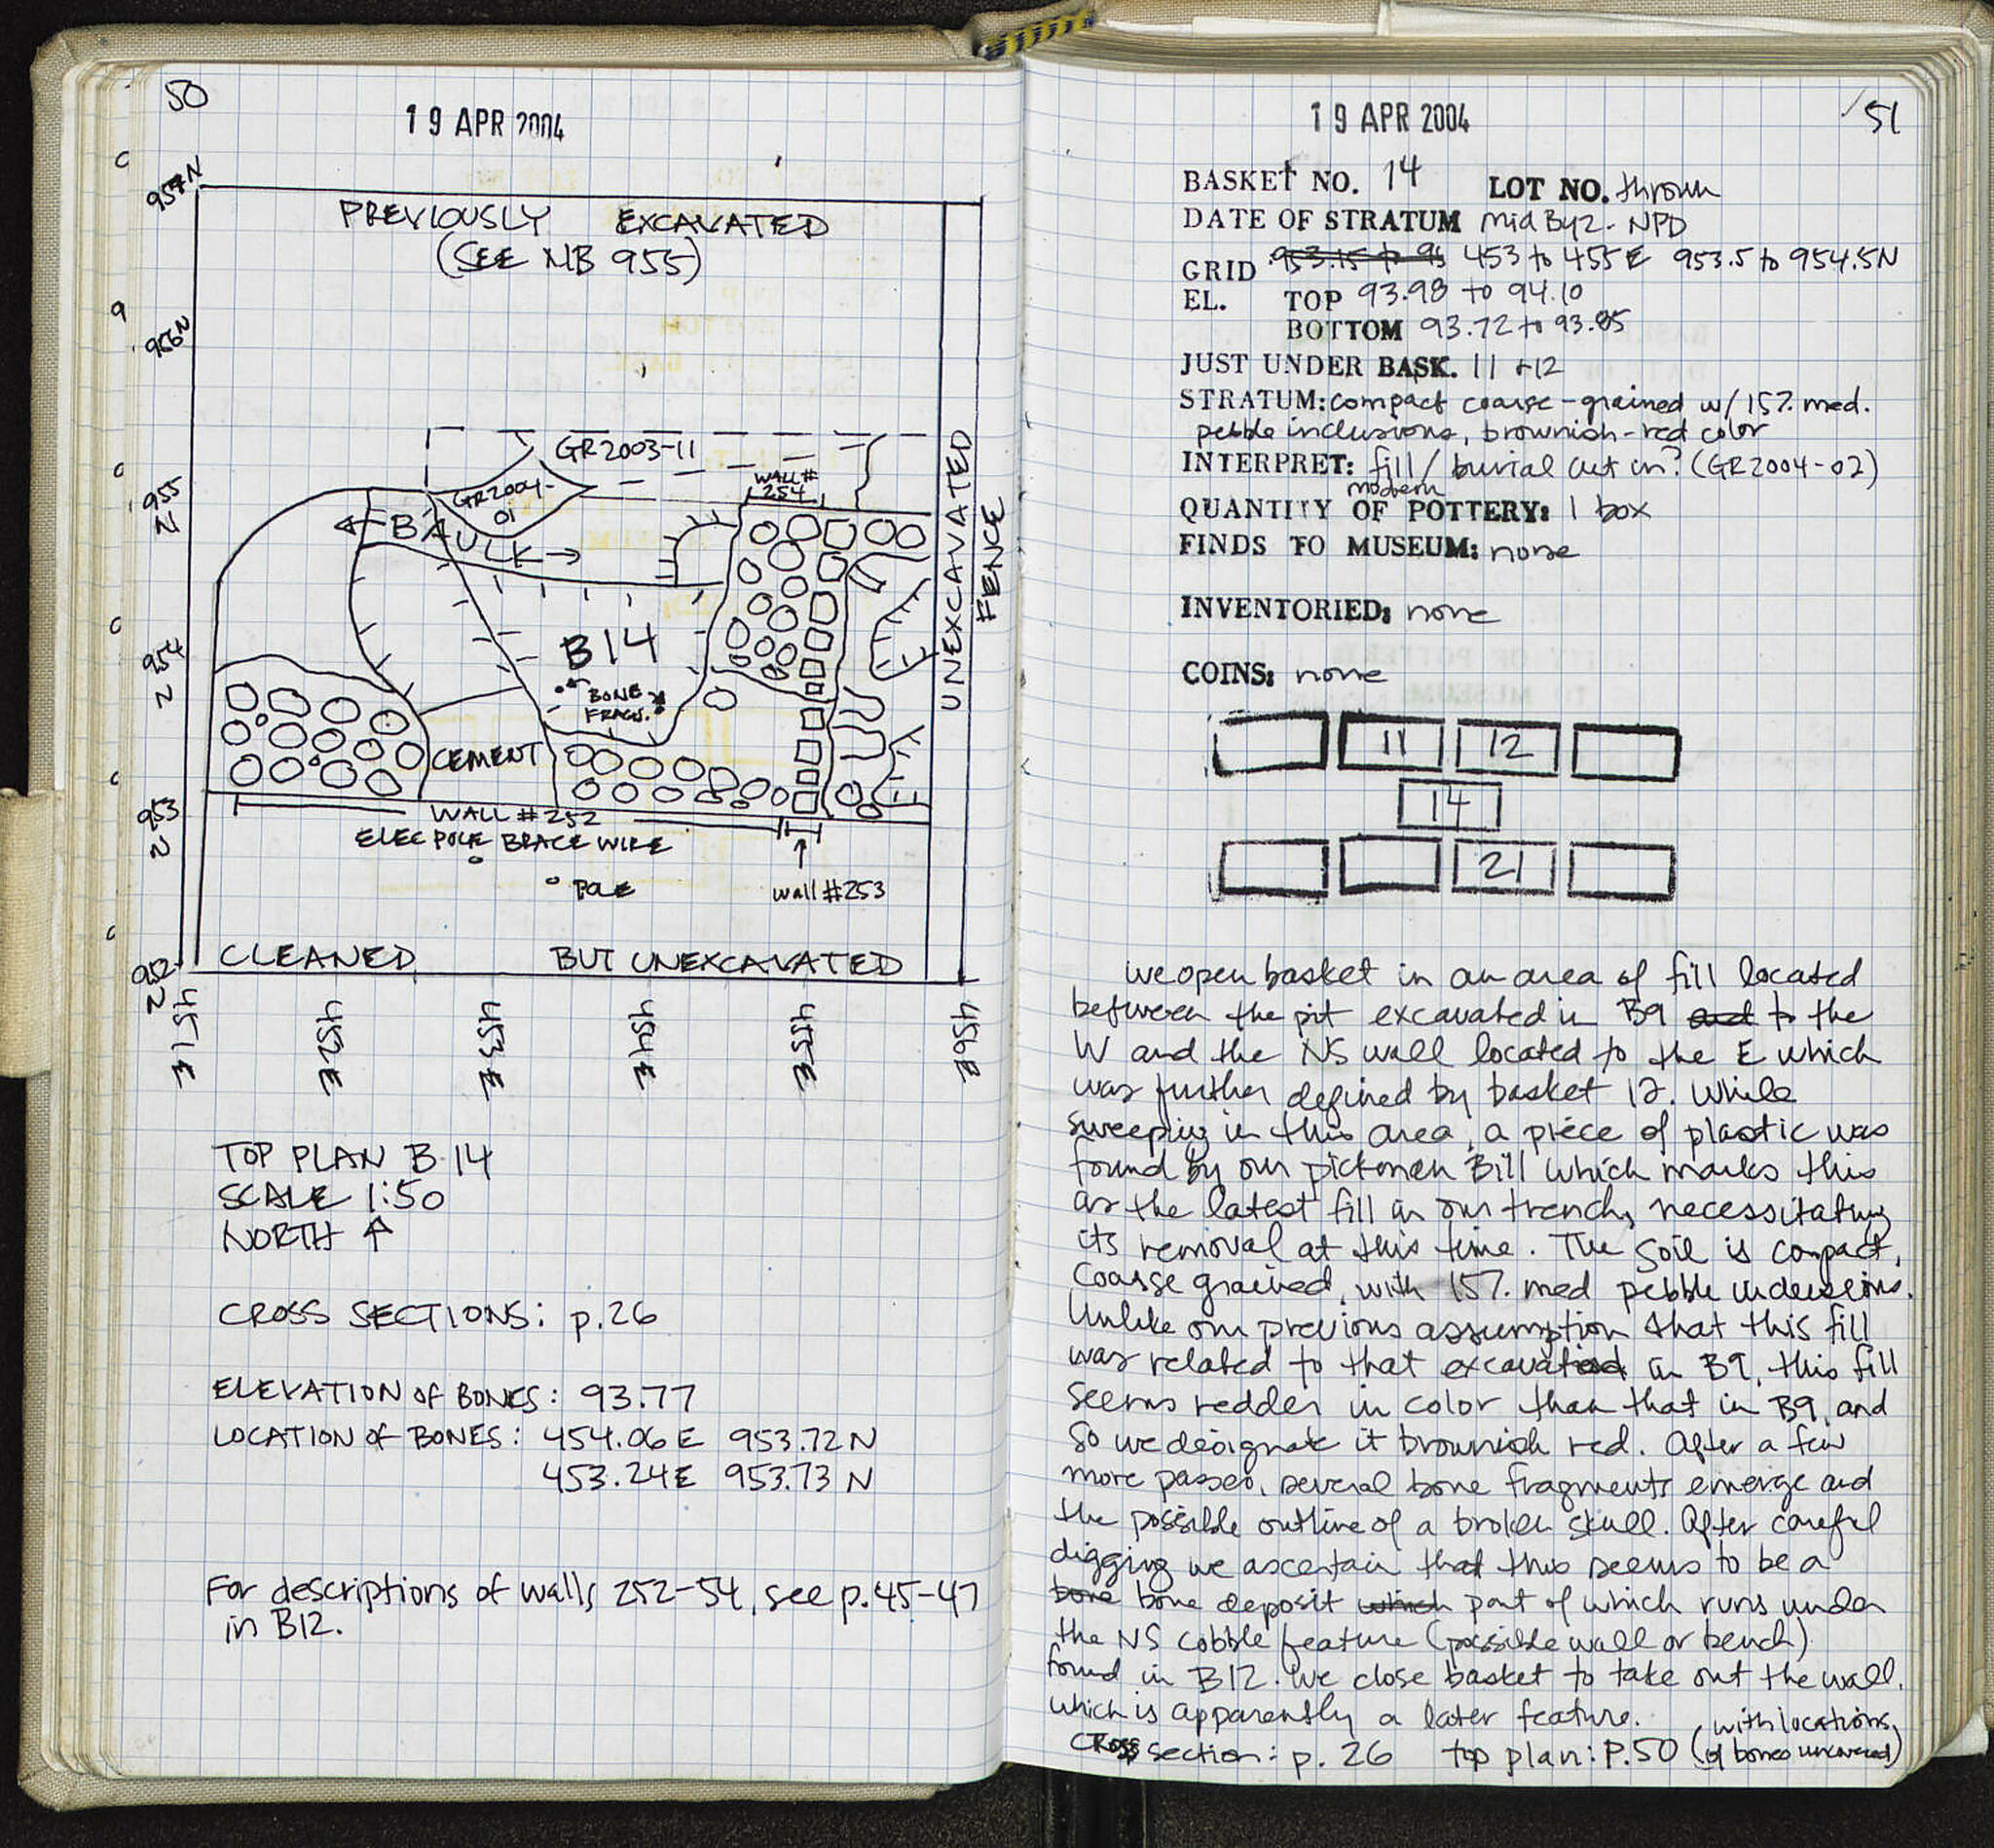 50
19 APR 2004
957N
PREVIOUSLY EXCAVATED
(SEE NB 955)
956N
GR2003-11
WALL #
254
955
N
GR2004-
01
← BAULK →
UNEXCAVATED
FENCE
954
N
B14
BONE
FRAGS.
CEMENT
953
N
WALL #252
ELEC POLE BRACE WIRE
POLE
wall #253
952
N
CLEANED BUT UNEXCAVATED
451E 452E 453E 454E 455E 456E
TOP PLAN B 14
SCALE 1:50
NORTH ↑
CROSS SECTIONS: p.26
ELEVATION OF BONES: 93.77
LOCATION OF BONES: 454.06E 953.72N
453.24E 953.73 N
For descriptions of walls 252-54, see p.45-47
in B12.
51
19 APR 2004
BASKET NO. 14 LOT NO. thrown
DATE OF STRATUM mid Byz - NPD
GRID 953.15 to 95 453 to 455E 953.5 to 954.5N
EL. TOP 93.98 to 94.10
BOTTOM 93.72 to 93.85
JUST UNDER BASK. 11 + 12
STRATUM: compact coarse-grained w/ 15% med.
pebble inclusions, brownish-red color
INTERPRET: fill/burial cut in? (GR2004-02)
modern
QUANTITY OF POTTERY: 1 box
FINDS TO MUSEUM: none
INVENTORIED: none
COINS: none
11 12
14
21
we open basket in an area of fill located
between the pit excavated in B9 and to the
W and the NS wall located to the E which
was further defined by basket 12. While
sweeping in this area, a piece of plastic was
found by our pickman Bill which marks this
as the latest fill in our trench, necessitating
its removal at this time. The soil is compact,
coarse grained, with 15% med pebble inclusions.
Unlike our previous assumption that this fill
was related to that excavated in B9, this fill
seems redder in color than that in B9, and
so we designate it brownish red. After a few
more passes, several bone fragments emerge and
the possible outline of a broken skull. After careful
digging we ascertain that this seems to be a
bone bone deposit which part of which runs under
the NS cobble feature (possible wall or bench)
found in B12. We close basket to take out the wall,
which is apparently a later feature.
Cross section: p. 26 top plan: P.50 (with locations
of bones uncovered)